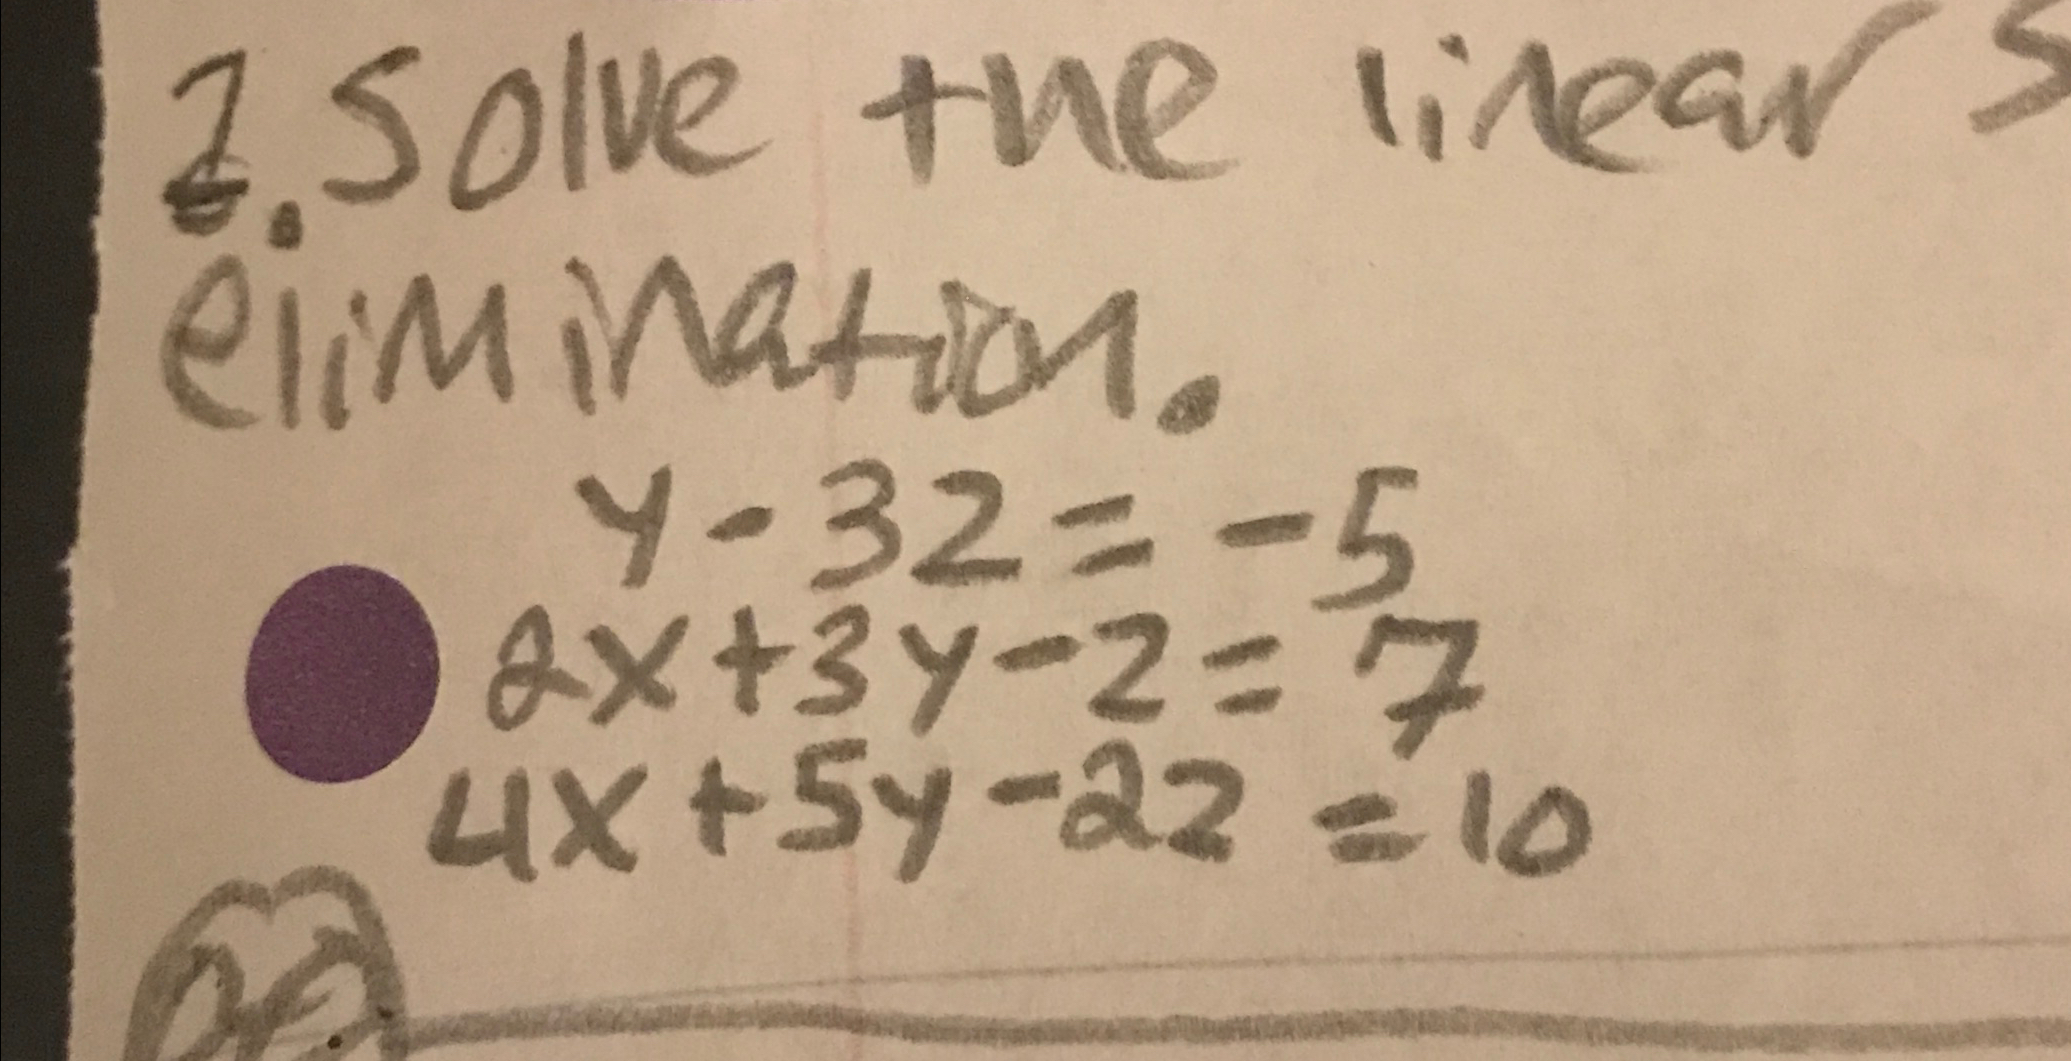 2. Solve the linear s
elimination.
y - 3z = -5
2x + 3y - z = 7
4x + 5y - 2z = 10